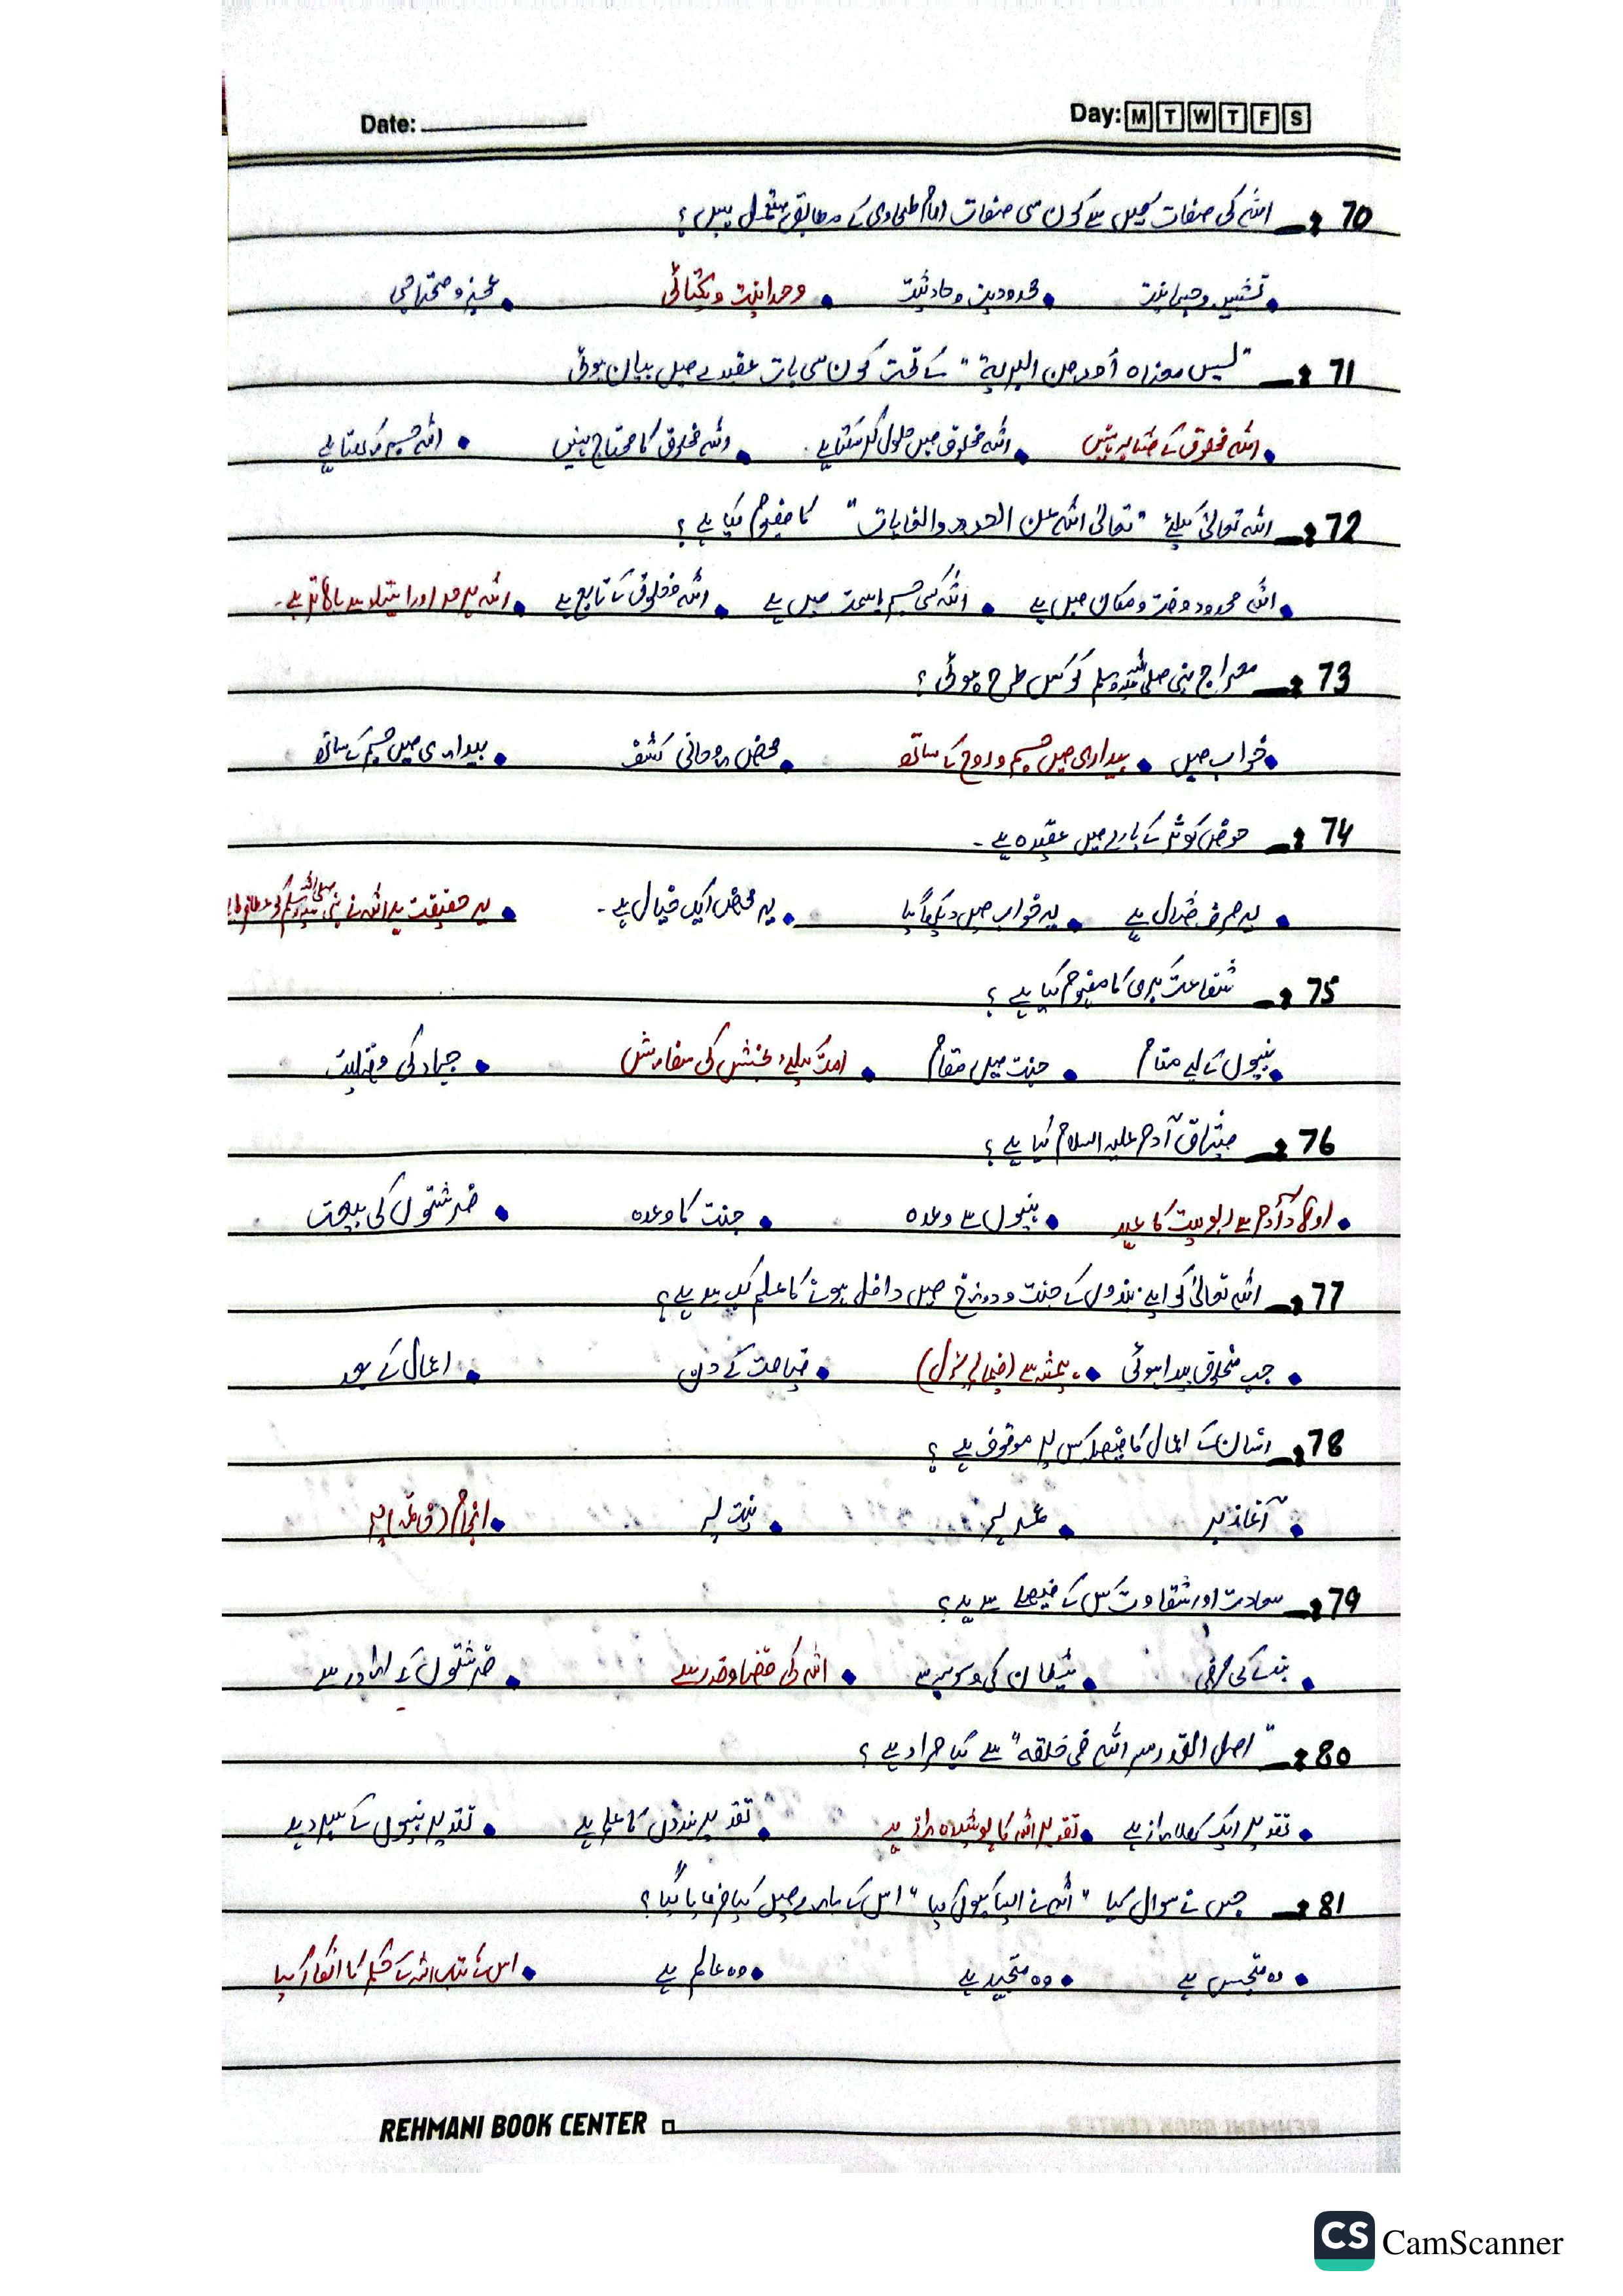 Date: Day: M T W T F S
70 اللہ کی صفات میں سے کون سی صفات امام طحاوی کے مطابق ہیں؟
• تشبیہ و جسمانیت • محدودیت و حادثیت • وحدانیت و یکتائی • عجز و محتاجی
71 "لیس معناہ أحد من البریة" کے تحت کون سی بات عقیدے میں بیان ہوئی
• اللہ مخلوق کے مشابہ نہیں • اللہ مخلوق میں حلول کر سکتا ہے • اللہ مخلوق کا محتاج نہیں • اللہ جسم رکھتا ہے
72 اللہ تعالیٰ کیلئے "تعالیٰ اللہ عن الحدود والغایات" کا مفہوم کیا ہے؟
• اللہ محدود وقت و مکان میں ہے • اللہ کسی جسم یا سمت میں ہے • اللہ مخلوق کے تابع ہے • اللہ ہر حد اور انتہا سے بالاتر ہے۔
73 معراج نبی صلی اللہ علیہ وسلم کو کس طرح ہوئی؟
• خواب میں • بیداری میں جسم و روح کے ساتھ • محض روحانی کشف • بیداری میں جسم کے ساتھ
74 حوض کوثر کے بارے میں عقیدہ ہے۔
• یہ صرف مثال ہے • یہ خواب میں دیکھا گیا • یہ محض ایک خیال ہے۔ • یہ حقیقت ہے اللہ نے نبی صلی اللہ علیہ وسلم کو عطا فرمایا
75 شفاعت کبریٰ کا مفہوم کیا ہے؟
• نبیوں کے لیے مقام • جنت میں مقام • امت کیلئے بخشش کی سفارش • جہاد کی فضیلت
76 میثاق آدم علیہ السلام کیا ہے؟
• اولاد آدم سے ربوبیت کا عہد • نبیوں سے وعدہ • جنت کا وعدہ • فرشتوں کی بیعت
77 اللہ تعالیٰ کو اپنے بندوں کے جنت و دوزخ میں داخل ہونے کا علم کب سے ہے؟
• جب مخلوق پیدا ہوئی • ہمیشہ سے • قیامت کے دن • اعمال کے بعد
78 انسان کے اعمال کا فیصلہ کس پر موقوف ہے؟
• آغاز پر • عمر پر • نیت پر • انجام (خاتمہ) پر
79 سعادت اور شقاوت کس کے فیصلے سے ہے؟
• بندے کی مرضی • شیطان کی وسوسہ سے • اللہ کی قضا و قدر سے • فرشتوں کے ارادے سے
80 "اصل القدر سر اللہ فی خلقہ" سے کیا مراد ہے؟
• تقدیر ایک کھلا راز ہے • تقدیر اللہ کا پوشیدہ راز ہے • تقدیر بندوں کا علم ہے • تقدیر نبیوں کے سپرد ہے
81 جس نے سوال کیا "اللہ نے ایسا کیوں کیا" اس کے بارے میں کیا فرمایا گیا؟
• وہ متجسس ہے • وہ مجتہد ہے • وہ عالم ہے • اس نے کتاب اللہ کے حکم کا انکار کیا
REHMANI BOOK CENTER
CS CamScanner